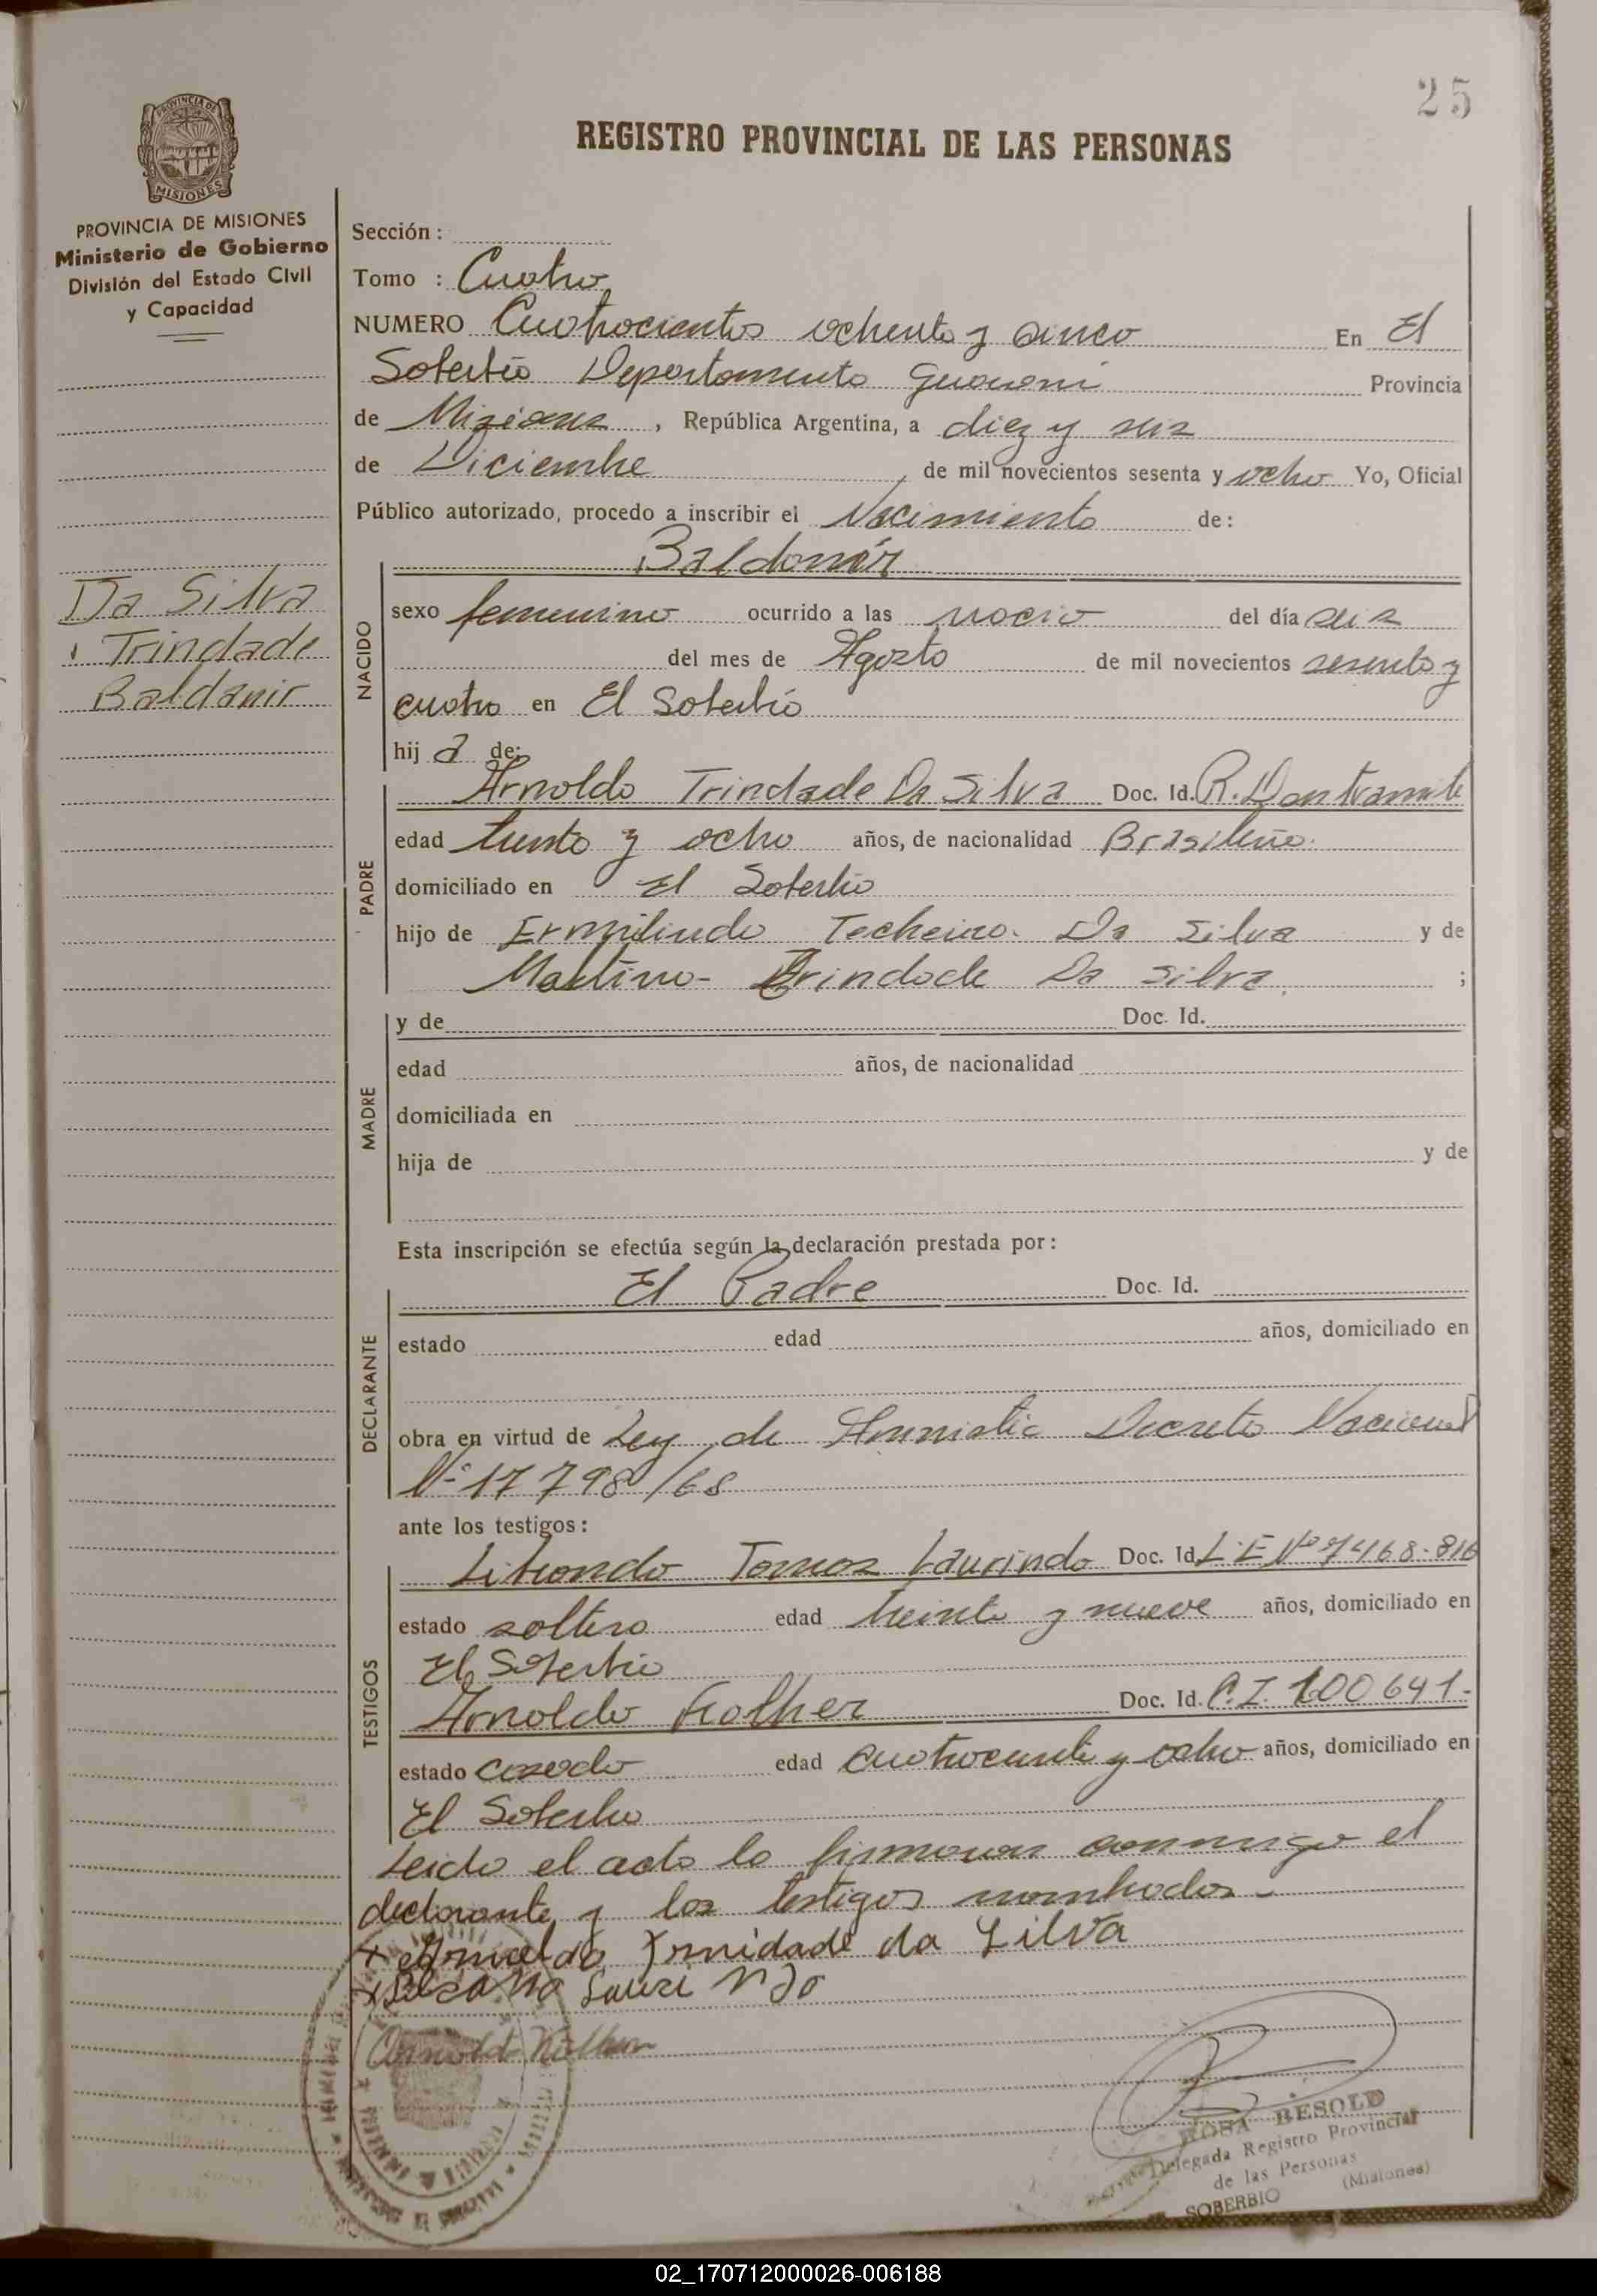 25
REGISTRO PROVINCIAL DE LAS PERSONAS
PROVINCIA DE
MISIONES
PROVINCIA DE MISIONES
Ministerio de Gobierno
División del Estado Civil
y Capacidad
Da Silva
Trindade
Baldanir
Sección :
Tomo : Cuatro
NUMERO Cuatrocientos ochenta y cinco En El
Soberbio Departamento Guarani Provincia
de Misiones , República Argentina, a diez y seis
de Diciembre de mil novecientos sesenta y ocho Yo, Oficial
Público autorizado, procedo a inscribir el Nacimiento de:
NACIDO
Baldomir
sexo femenino ocurrido a las del día seis
del mes de Agosto de mil novecientos sesenta y
cuatro en El Soberbio
hij a de:
PADRE
Arnoldo Trindade Da Silva Doc. Id. R. Den tramite
edad treinta y ocho años, de nacionalidad Brasileño.
domiciliado en El Soberbio
hijo de Ermilindo Techeiro Da Silva y de
Trindade Da Silva ;
MADRE
y de Doc. Id.
edad años, de nacionalidad
domiciliada en
hija de y de
Esta inscripción se efectúa según la declaración prestada por:
DECLARANTE
El Padre Doc. Id.
estado edad años, domiciliado en
obra en virtud de Ley de Amnistia Decreto Nacional
Nº 17798/68
ante los testigos:
TESTIGOS
Laurindo Doc. Id. L.E Nº 7468.816
estado soltero edad treinta y nueve años, domiciliado en
El Soberbio
Arnoldo Kolher Doc. Id. C.I. 100641-
estado casado edad cuatrocuenta y ocho años, domiciliado en
El Soberbio
Leido el acta la firmaran conmigo el
declarante y los testigos nombrados-
da Silva
ROSA BESOLD
Delegada Registro Provincial
de las Personas
SOBERBIO (Misiones)
02_170712000026-006188